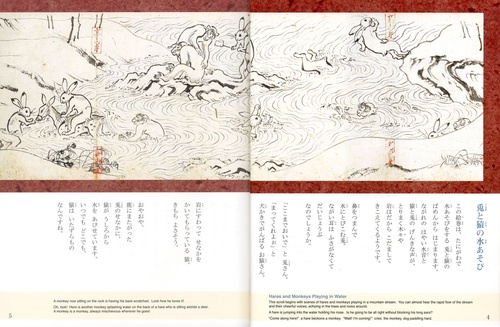 兎と猿の水あそび
この絵巻は、たにがわで
水あそびをする 兎と猿の
ばめんから はじまります。
ながれの はやい水音と
猿と兎の げんきな声が、
とりまく木々や
岩はだから こだまして
きこえてくるようです。
鼻をつまんで
水にとびこむ兎。
耳は ふさがなくて
だいじょうぶ
なのでしょうか。
「ここまでおいで」と 兎さん。
「まってくれよぉ」と
犬かきでがんばる お猿さん。
Hares and Monkeys Playing in Water
This scroll begins with scenes of hares and monkeys playing in a mountain stream. You can almost hear the rapid flow of the stream
and their cheerful voices, echoing in the trees and rocks around.
A hare is jumping into the water holding his nose. Is he going to be all right without blocking his long ears?
"Come along here!" a hare beckons a monkey. "Wait! I'm coming!" cries the monkey, dog-paddling hard.
4
岩にすわって せなかを
かいてもらっている猿。
きもち よさそう。
おやおや、
鹿にまたがった
兎のせなかに、
猿が うしろから
水を あびせています。
いつでも どこでも
猿は いたずらもの
なんですね。
A monkey now sitting on the rock is having his back scratched. Look how he loves it!
Oh, look! Here is another monkey splashing water on the back of a hare who is sitting astride a deer.
A monkey is a monkey, always mischievous wherever he goes!
5